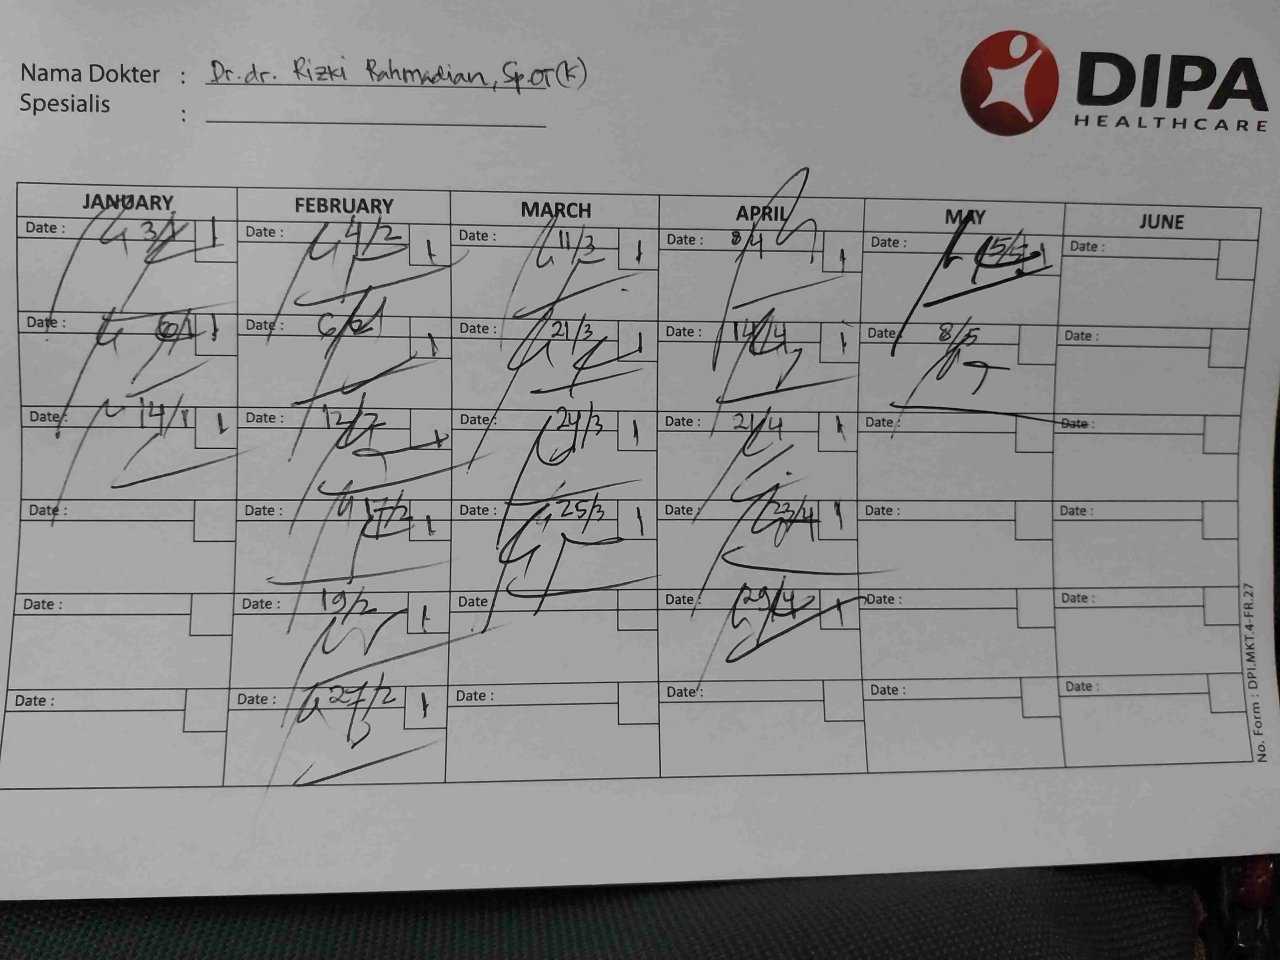 Nama Dokter : Dr. dr. Rizki Rahmadian, Sp.OT(K)
Spesialis :
DIPA
HEALTHCARE
JANUARY FEBRUARY MARCH APRIL MAY JUNE
Date : 3/1 1 Date : 4/2 1 Date : 11/3 1 Date : 8/4 1 Date : 5/5 1 Date :
Date : 6/1 1 Date : 6/2 1 Date : 21/3 1 Date : 14/4 1 Date : 8/5 Date :
Date : 14/1 1 Date : 12/2 1 Date : 24/3 1 Date : 21/4 1 Date : Date :
Date : Date : 17/2 1 Date : 25/3 1 Date : 23/4 1 Date : Date :
Date : Date : 19/2 1 Date Date : 29/4 1 Date : Date :
Date : Date : 27/2 1 Date : Date : Date : Date :
No. Form : DPI.MKT.4-FR.27